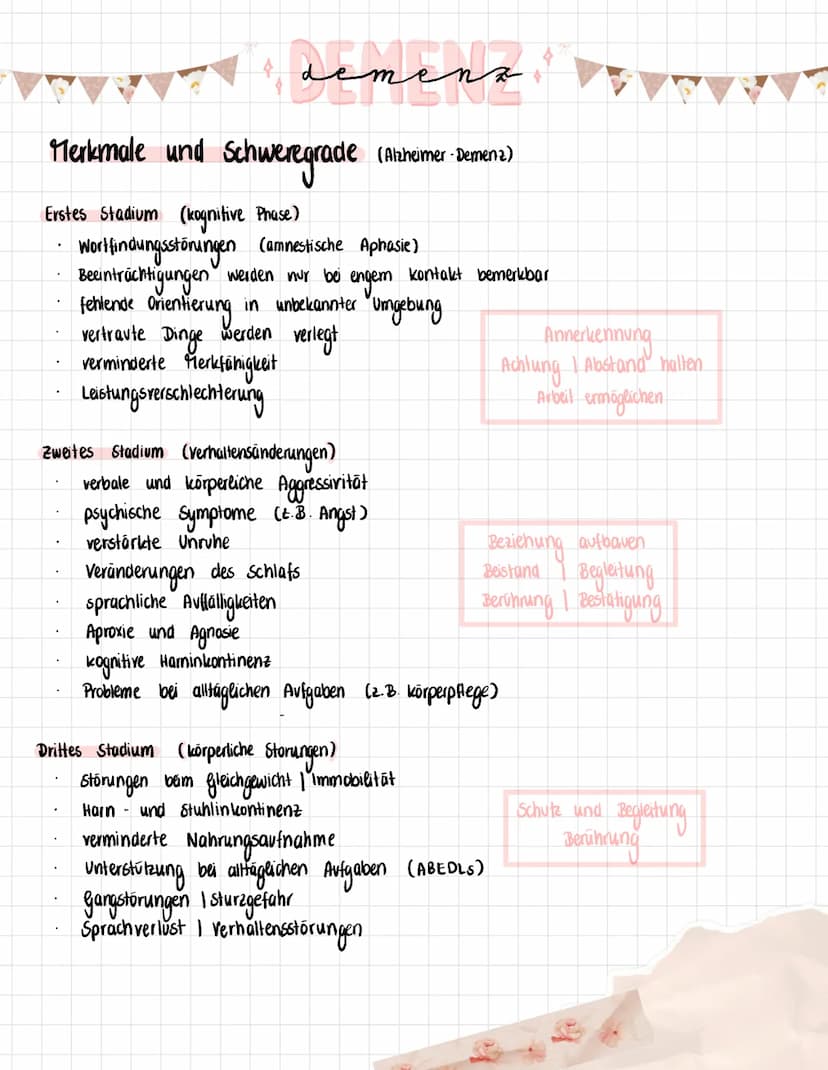 DEMENZ
demenz
Merkmale und Schweregrade (Alzheimer-Demenz)
Erstes Stadium (kognitive Phase)
· Wortfindungsstörungen (amnestische Aphasie)
· Beeinträchtigungen werden nur bei engem Kontakt bemerkbar
· fehlende Orientierung in unbekannter Umgebung
· vertraute Dinge werden verlegt
· verminderte Merkfähigkeit
· Leistungsverschlechterung
Annerkennung
Achtung | Abstand halten
Arbeit ermöglichen
Zweites Stadium (Verhaltensänderungen)
· verbale und körperliche Aggressivität
· psychische Symptome (z.B. Angst)
· verstärkte Unruhe
· Veränderungen des Schlafs
· sprachliche Auffälligkeiten
· Aproxie und Agnosie
· kognitive Harninkontinenz
· Probleme bei alltäglichen Aufgaben (z.B. Körperpflege)
Beziehung aufbauen
Beistand | Begleitung
Berührung | Bestätigung
Drittes Stadium (körperliche Störungen)
· Störungen beim Gleichgewicht | Immobilität
· Harn- und Stuhlinkontinenz
· verminderte Nahrungsaufnahme
· Unterstützung bei alltäglichen Aufgaben (ABEDLs)
· Gangstörungen | Sturzgefahr
· Sprachverlust | Verhaltensstörungen
Schutz und Begleitung
Berührung